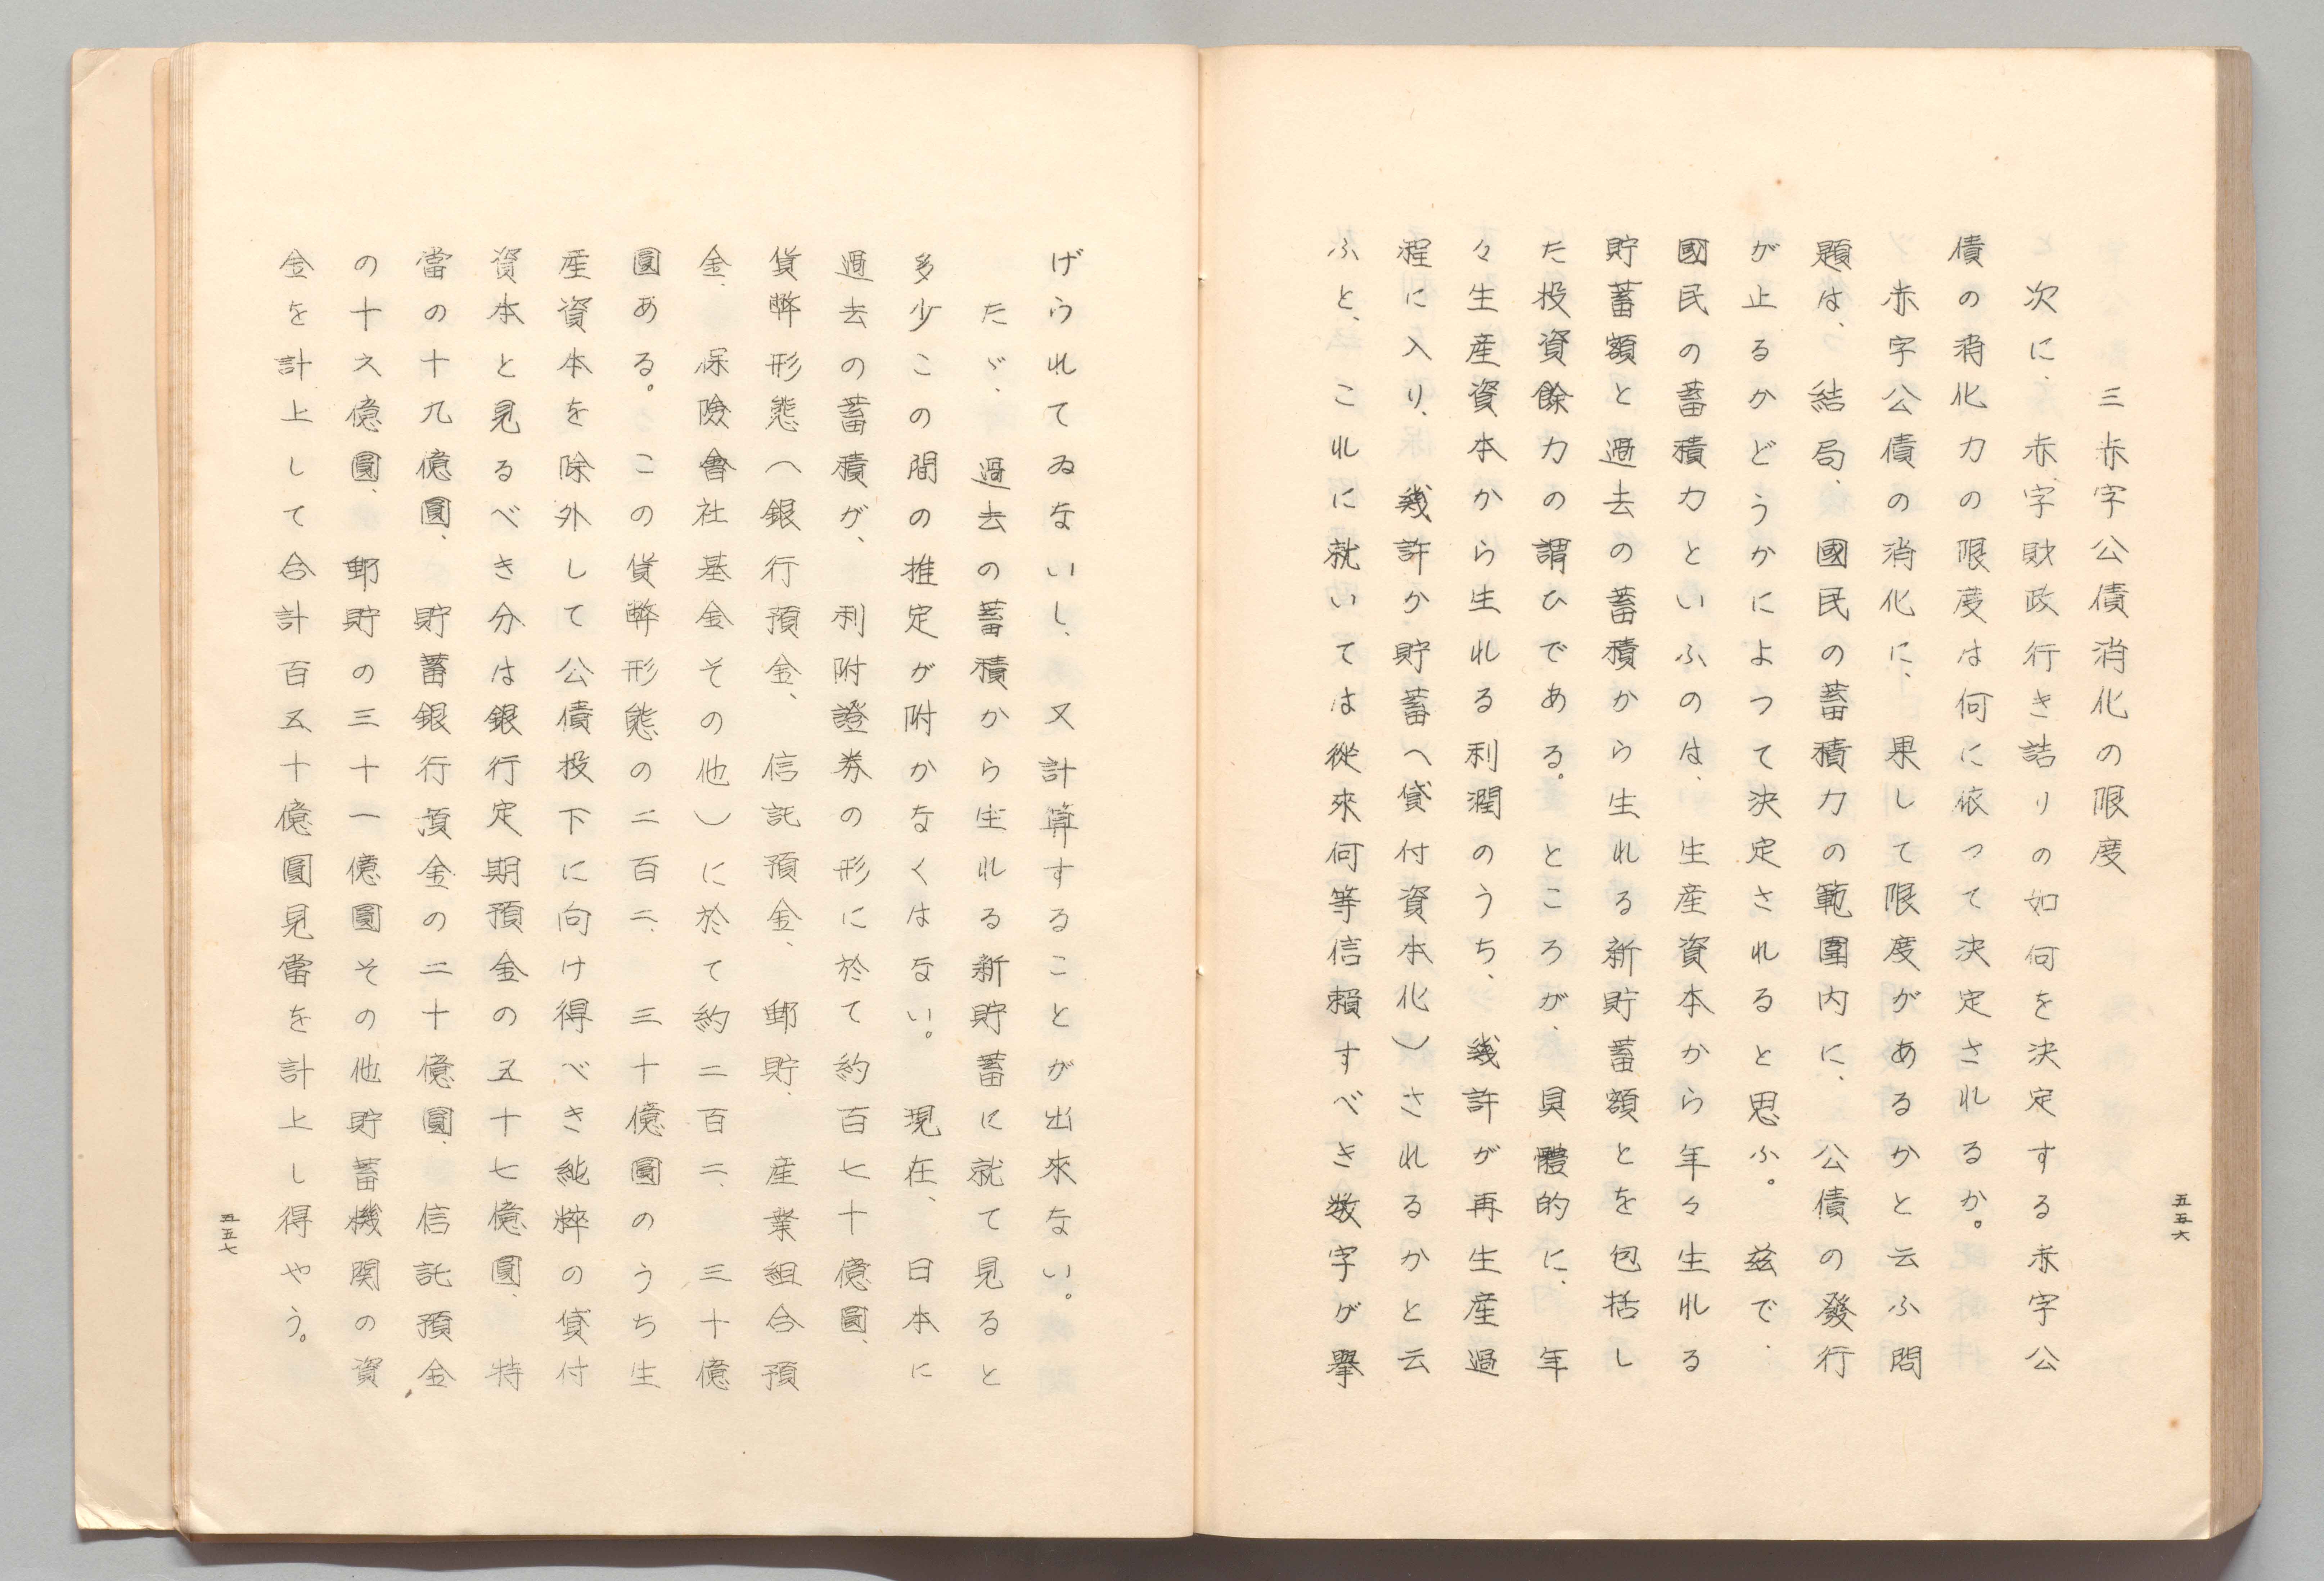 五五六
三 赤字公債消化の限度
次に、赤字財政行き詰りの如何を決定する赤字公
債の消化力の限度は何に依つて決定されるか。
赤字公債の消化に、果して限度があるかと云ふ問
題は、結局、國民の蓄積力の範圍内に、公債の發行
が止るかどうかによつて決定されると思ふ。茲で、
國民の蓄積力といふのは、生産資本から年々生れる
貯蓄額と過去の蓄積から生れる新貯蓄額とを包括し
た投資餘力の謂ひである。ところが、具體的に、年
々生産資本から生れる利潤のうち、幾許が再生産過
程に入り、幾許が貯蓄へ貸付資本化)されるかと云
ふと、これに就いては從來何等信賴すべき数字が擧
げられてゐないし、又計算することが出來ない。
たゞ、過去の蓄積から生れる新貯蓄に就て見ると
多少この間の推定が附かなくはない。現在、日本に
過去の蓄積が、利附證券の形に於て約百七十億圓、
貨幣形態(銀行預金、信託預金、郵貯、産業組合預
金、保險會社基金その他)に於て約二百二、三十億
圓ある。この貨幣形態の二百二、三十億圓のうち生
産資本を除外して公債投下に向け得べき純粹の貸付
資本と見るべき分は銀行定期預金の五十七億圓、特
當の十九億圓、貯蓄銀行預金の二十億圓、信託預金
の十九億圓、郵貯の三十一億圓その他貯蓄機関の資
金を計上して合計百五十億圓見當を計上し得やう。
五五七